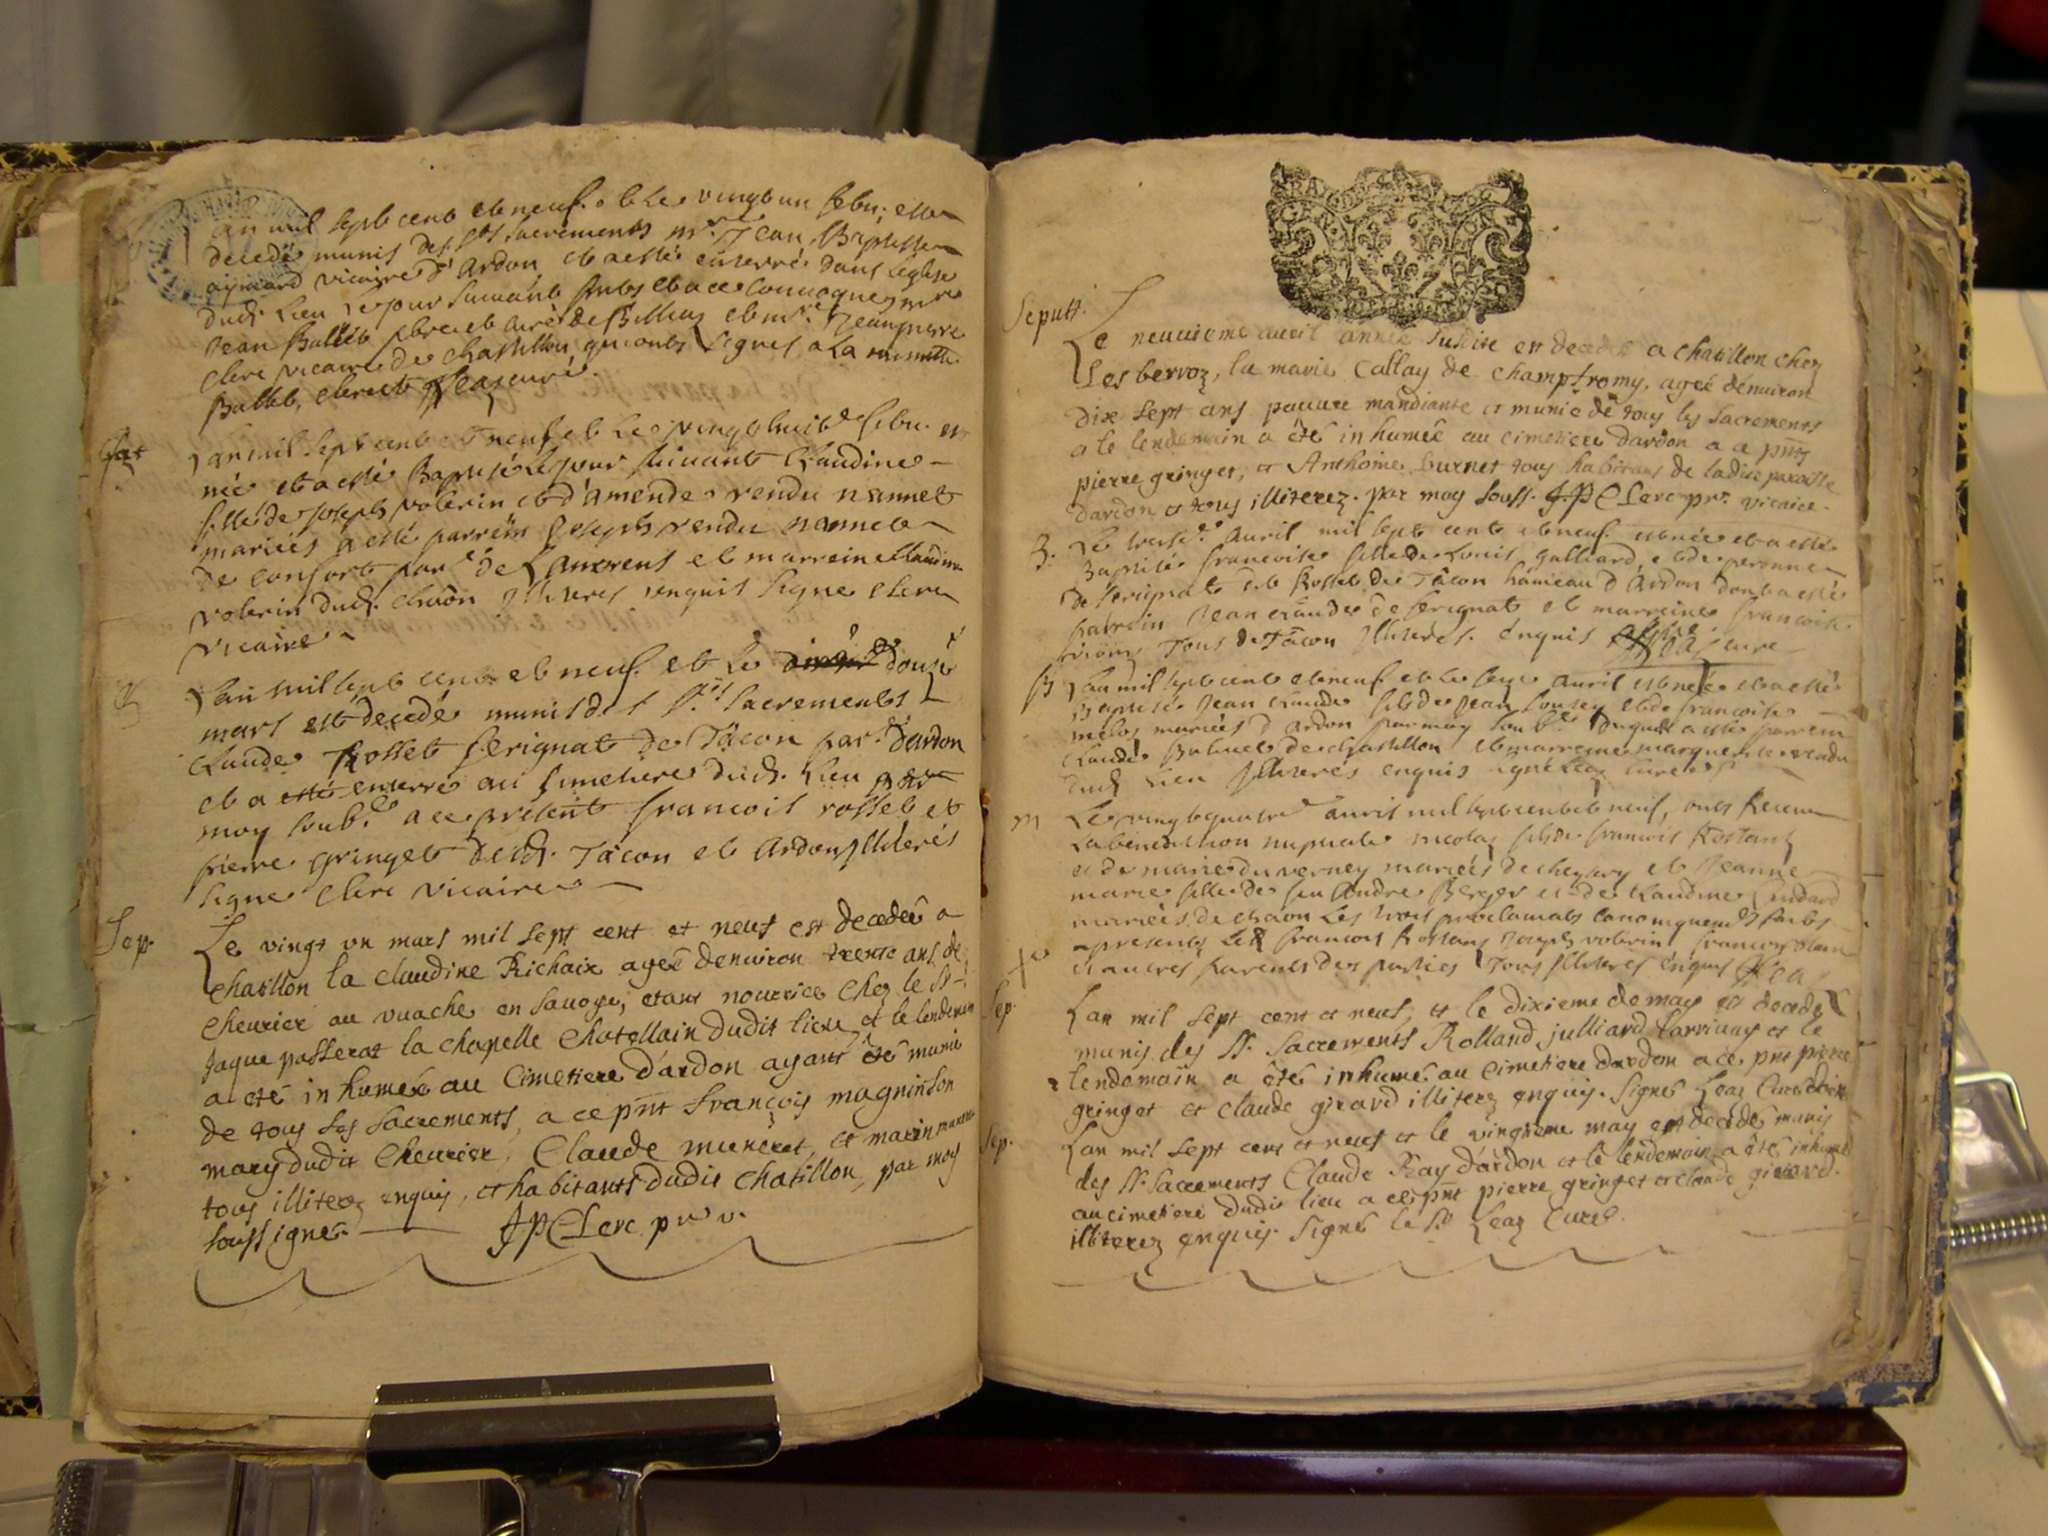 an mil sept cent et neuf et le vingt un febu. est
decedé munis des sts sacrements mre Jean Baptiste
aymard vicaire d'Ardon et a esté enterré dans l'eglise
dud. lieu le jour suivant
Jean Ballet curé de Billiaz et mre Jean pierre
clerc vicaire de chastillon qui ont signes a la minutte
Ballet, clerc et Leaz curé.
Bat
L'an mil sept cent et neuf et le vingt huit febu. est
née et a esté Baptisée le jour suivant Claudine
fille de Joseph volerin et d'amende vendu nannet
mariés a esté parrein Joseph vendu nannet
de confort par. de Lancrens et marreine Claudine
volerin dud. chaon Illiterés enquis signe clerc
vicaire
L'an mil sept cent et neuf et le douze
mars est decedé munis des sts sacrements
Claude Rosset serignat de Tacon par. d'ardon
et a esté enterré au simetiere dud. lieu par
moy soub. a ce present francois rosset et
pierre gringet de Tacon et Ardon Illiterés
signe clerc vicaire
Sep.
Le vingt un mars mil sept cent et neuf est decedeé a
chatillon la claudine Richaix ageé denuiron trente ans de
cheurier au vuache en sauoye, etant nourrice chez le Sr
Jaque passerat la chapelle chatellain dudit lieu et le lendemain
a eté inhumeé au cimetiere d'ardon ayant été munie
de tous les sacrements, a ce pnt françois magnin son
mary dudit cheurier, Claude muneret, et marin
tous illiterez enquis, et habitants dudit chatillon, par moy
soussigné. JP Clerc pre v.
Sepult.
Le neuuieme auril année susdite est decedeé a chatillon chez
les berroz, la marie Callay de champfromy, ageé denuiron
dix sept ans pauure mandiante et munie de tous les sacrements
a le lendemain a été inhumeé au cimetiere dardon a ce pnts
pierre gringet, et Anthoine burnet tous habitans de ladite paroisse
dardon et tous illiterez. par moy souss. JP Clerc pre. vicaire.
B.
Le treise. Auril mil sept cent et neuf est née et a esté
Baptisée francoise fille de Louis galliard, et de peronne
de serignat et Rosset de Tacon hameau d'Ardon dont a esté
parrein Jean claude de serignat et marreine francoise
Tous de Tacon Illiterés. enquis Leaz curé
B
L'an mil sept cent et neuf et le seze auril est né et a esté
Baptisé Jean claude fils de Jean et de francoise
mariés d'Ardon par moy soub. duquel a esté parrein
claude de chastillon et marreine marguerite vendu
dud. lieu Illiterés enquis signé Leaz curé
m
Le vingt quatre auril mil sept cent et neuf, ont receu
la benediction nuptiale nicolaz fils de francois Rostan
et de marie du verney mariés de chezery et Jeanne
marie fille de feu Andre Berger et de claudine
mariés de chaon les trois proclamats canoniquem. faits
presents les francois Rostan Joseph volerin francois
et autres parents des parties Tous Illiterés enquis Lea
Sep.
L'an mil sept cent et neuf, et le dixieme de may est decedé
munis des Sts. sacrements Rolland julliard et le
lendemain a été inhumé au cimetiere dardon a ce pnt pierre
gringet et claude girard illiterez enquis. signé Leaz Curé
Sep.
L'an mil sept cent et neuf et le vingtieme may est decedé munis
des Sts. sacrements Claude Ray d'ardon et le lendemain a été inhumé
au cimetiere dudit lieu a ce pnt pierre gringet et claude girard.
illiterez enquis. signé le Sr Leaz Curé.